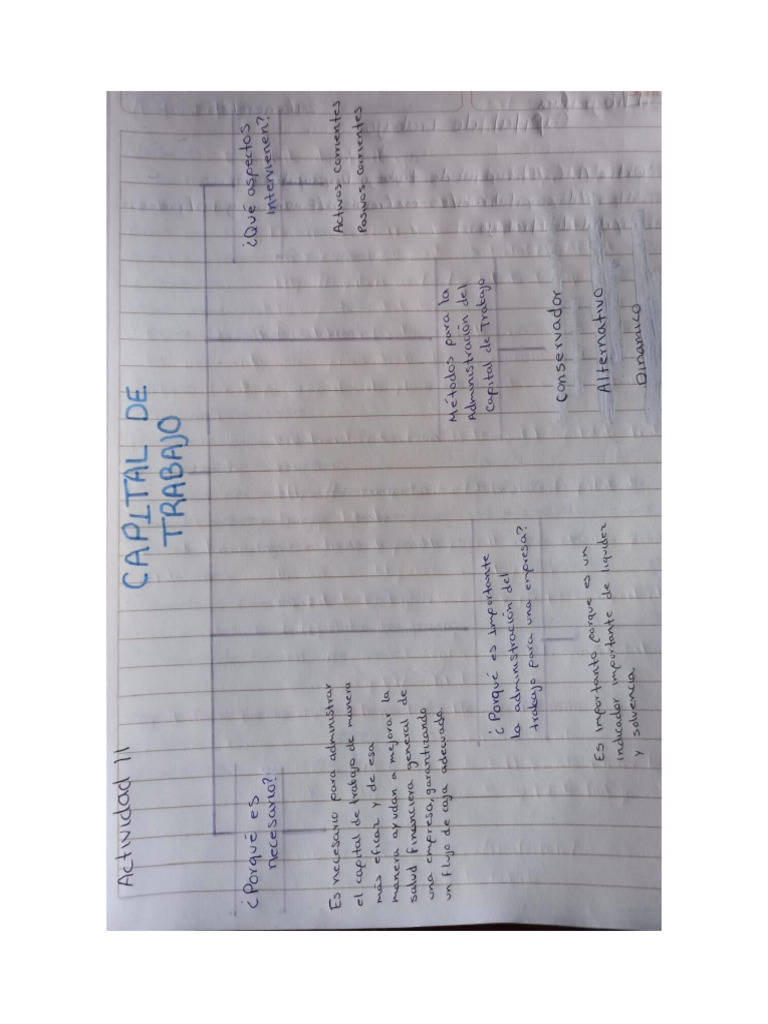 Actividad 11
CAPITAL DE
TRABAJO
¿Porqué es
necesario?
Es necesario para administrar
el capital de trabajo de manera
más eficaz y de esa
manera ayudan a mejorar la
salud financiera general de
una empresa, garantizando
un flujo de caja adecuado.
¿Porqué es importante
la administración del
trabajo para una empresa?
Es importante porque es un
indicador importante de liquidez
y solvencia
Métodos para la
Administración del
Capital de Trabajo
Conservador
Alternativo
Dinamico
¿Qué aspectos
intervienen?
Activos corrientes
Pasivos corrientes